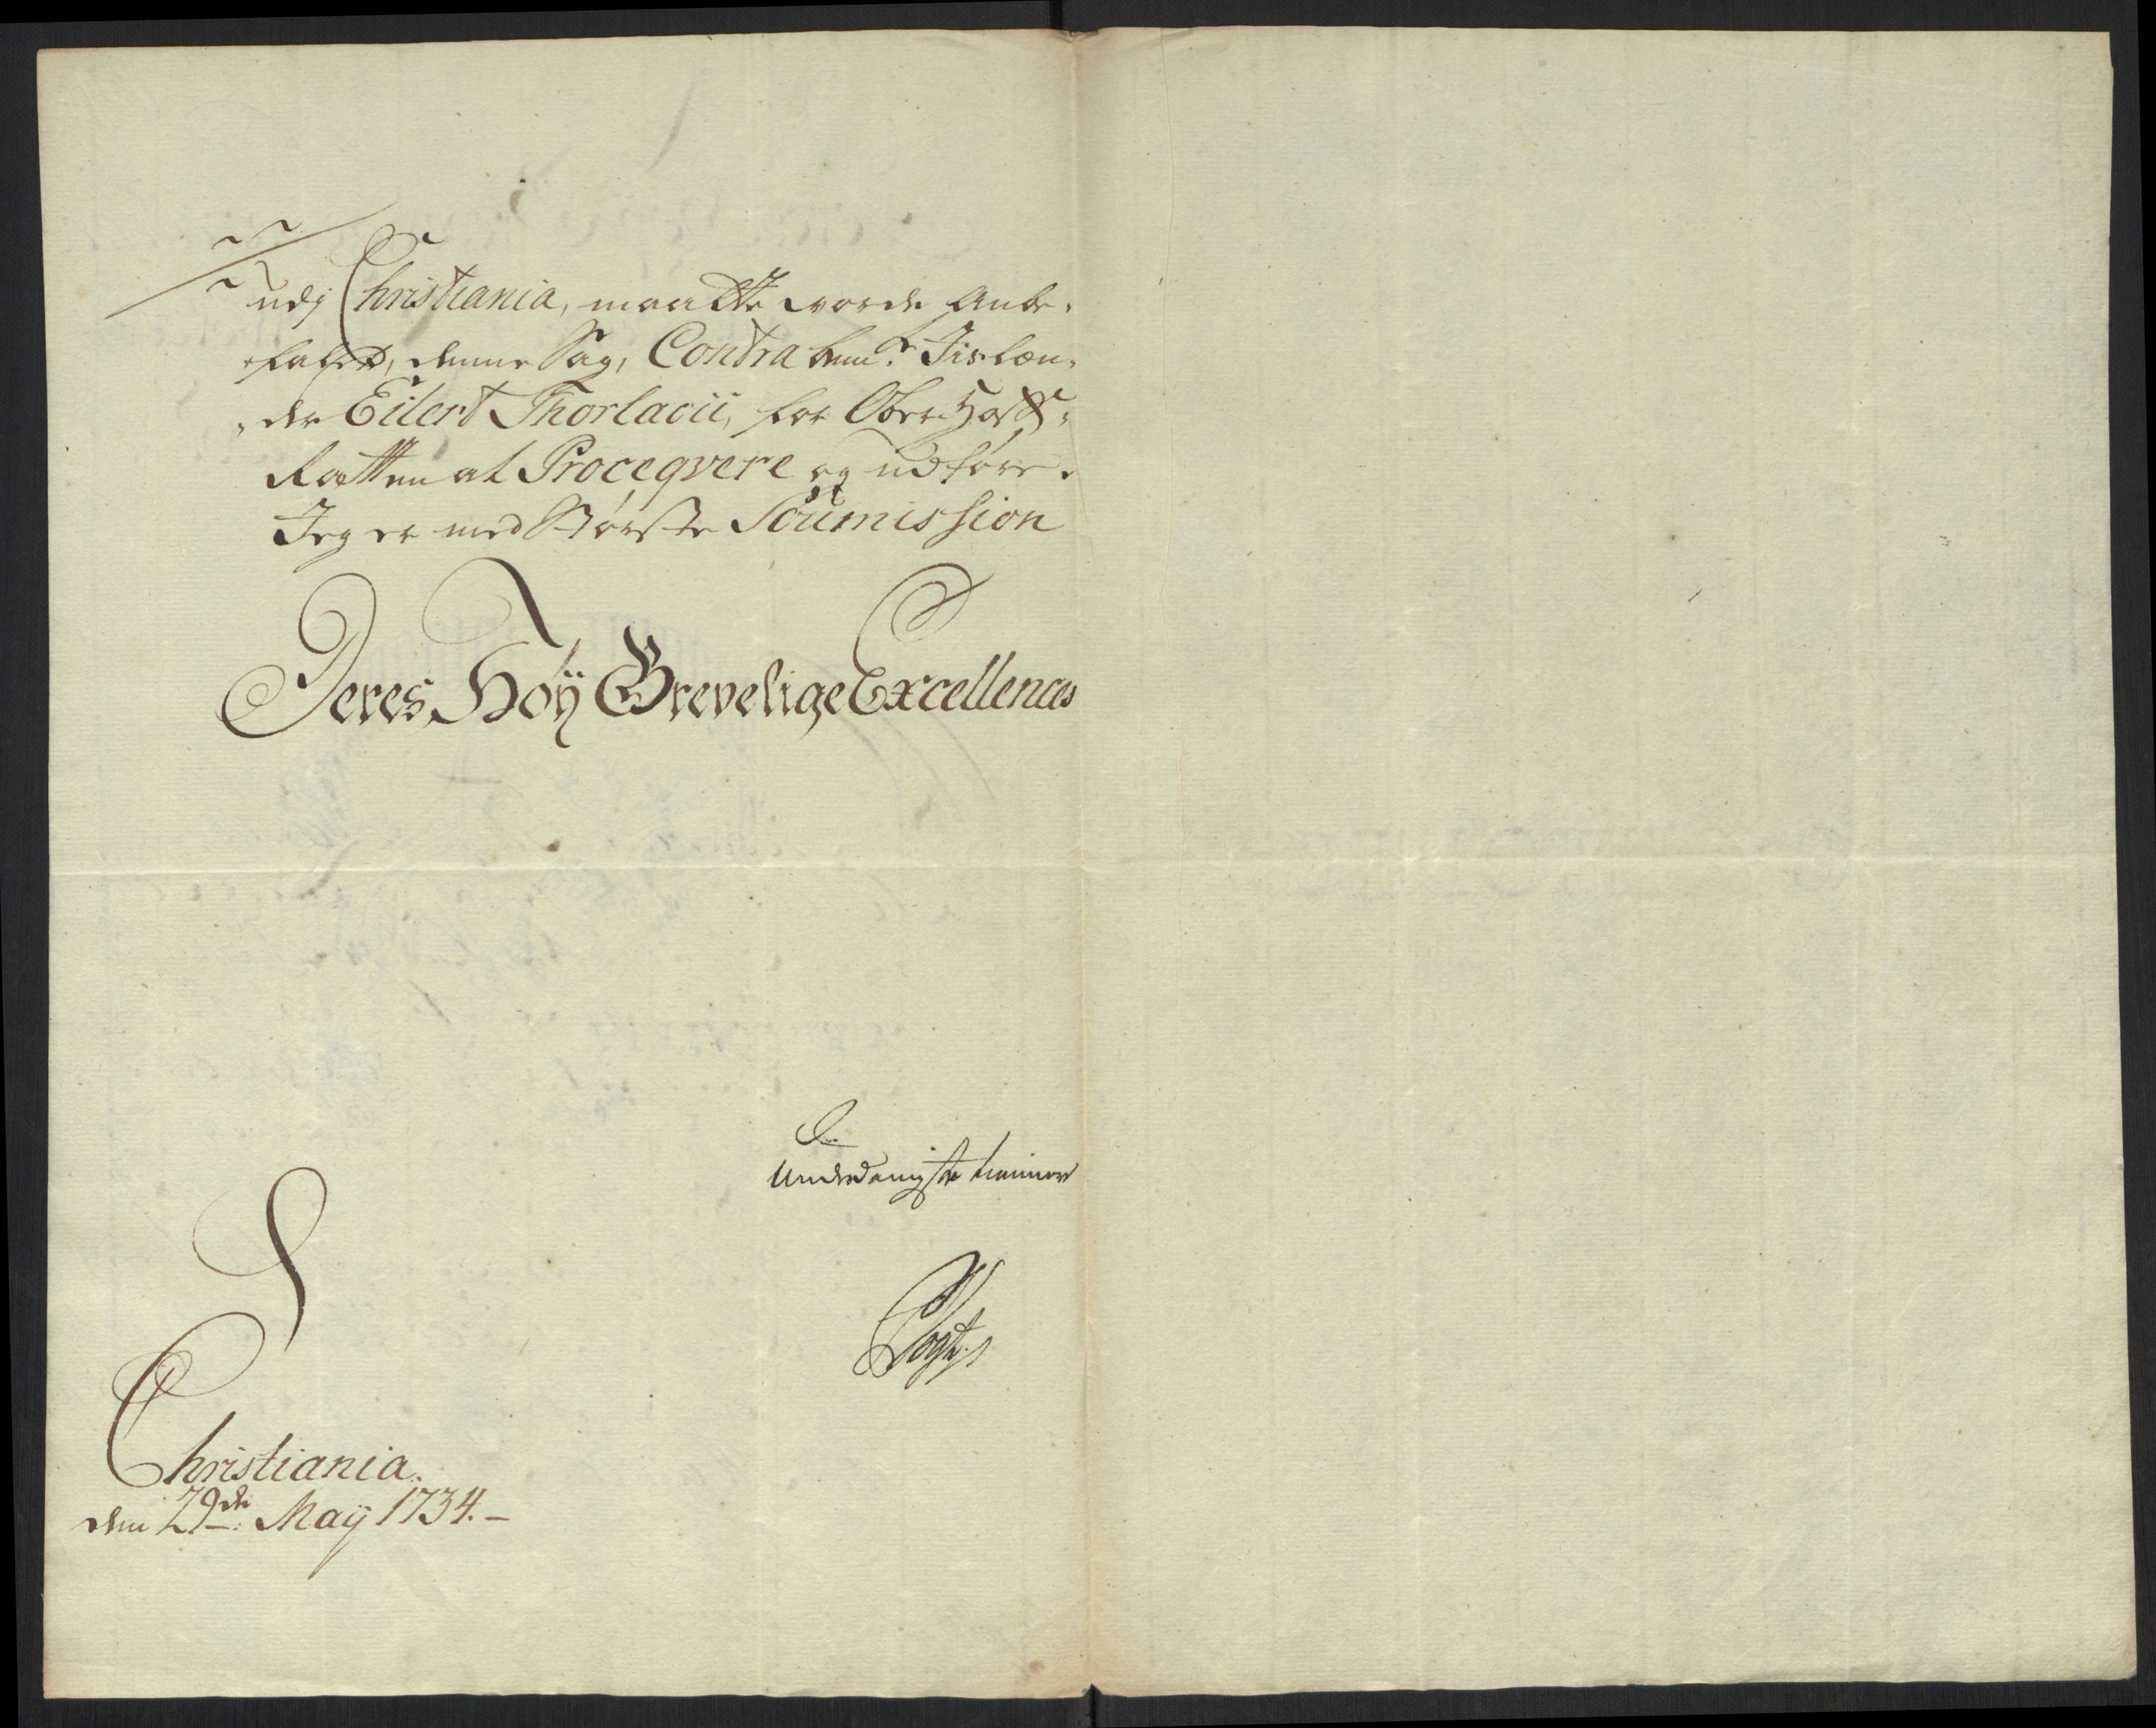 udj Christiania, maatte vorde Anbe-
falet, denne Sag, Contra bem.te Iislæn-
der Eilert Thorlacii, for Ober Hoff-
Rætten at Proceqvere og udføre.
Jeg er med Største Soumission
Deres Høÿ Grevelige Excellences
Underdanigste tienner
Vogt
Christiania.
den 29de May 1734.